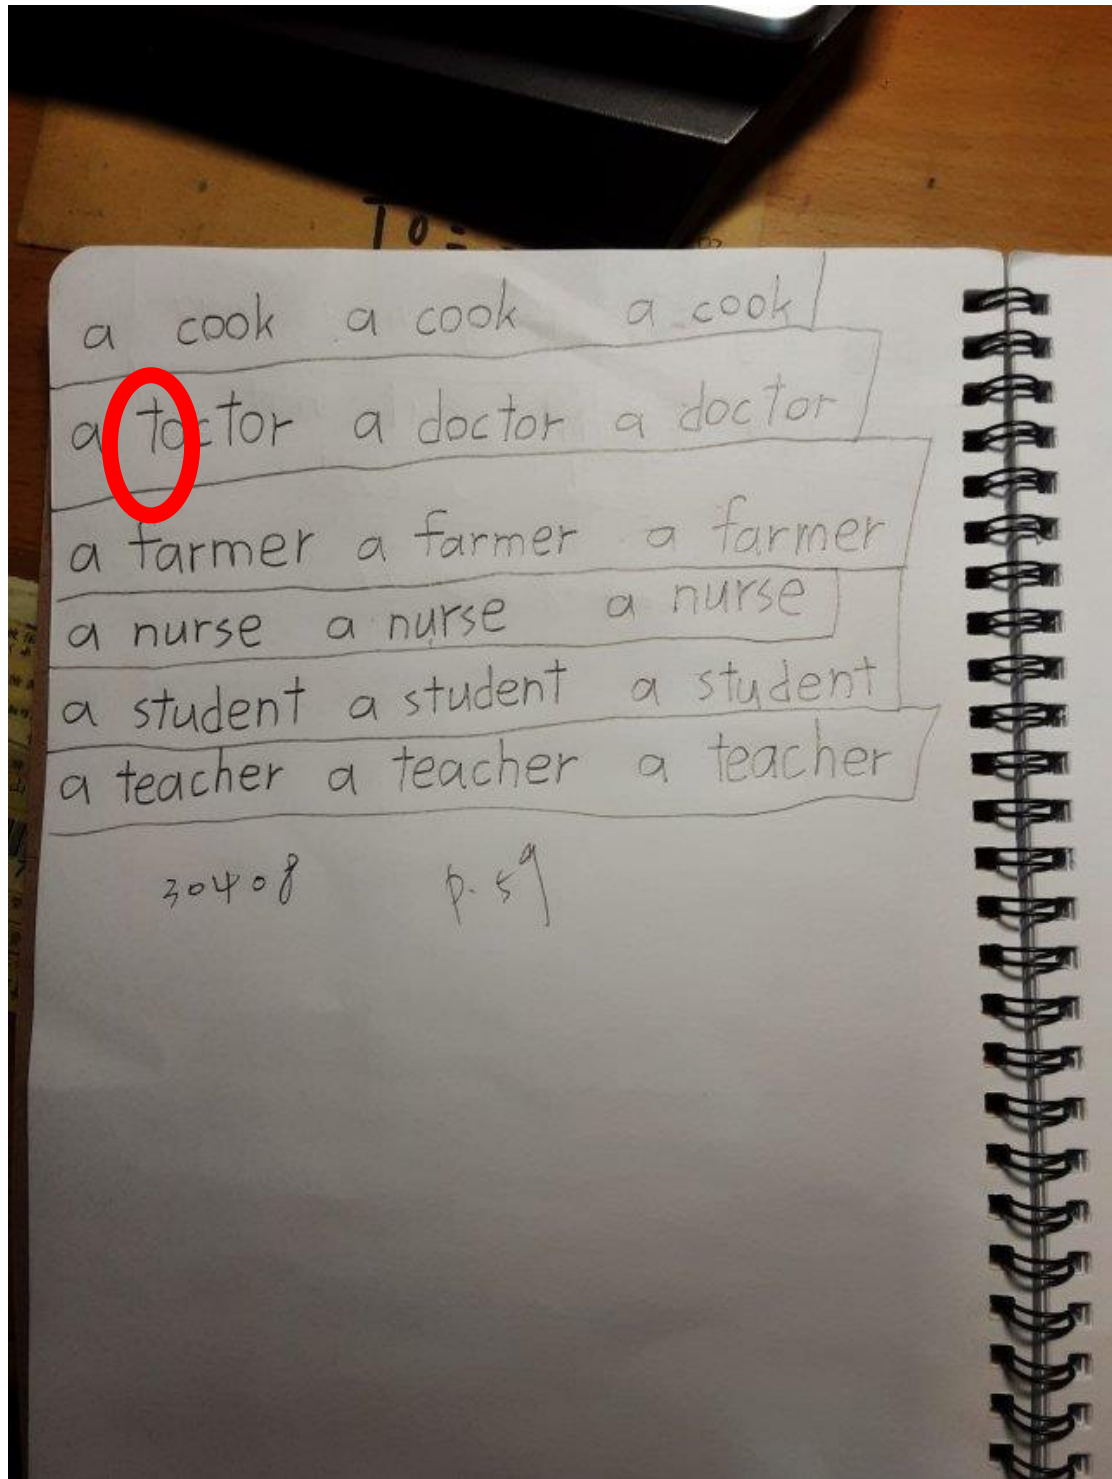 To:
a cook a cook a cook
a toctor a doctor a doctor
a farmer a farmer a farmer
a nurse a nurse a nurse
a student a student a student
a teacher a teacher a teacher
30408 p.59